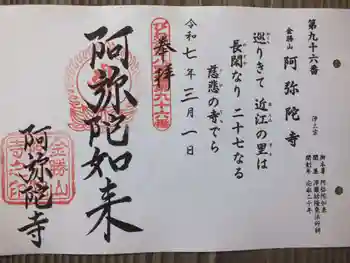 第九十六番
金勝山 阿弥陀寺 浄土宗
御本尊 阿弥陀如来
巡りきて 近江の里は
長閑なり 二十七なる
慈悲の寺でら
令和七年三月一日
奉拝
阿弥陀如来
阿弥陀寺
金勝山